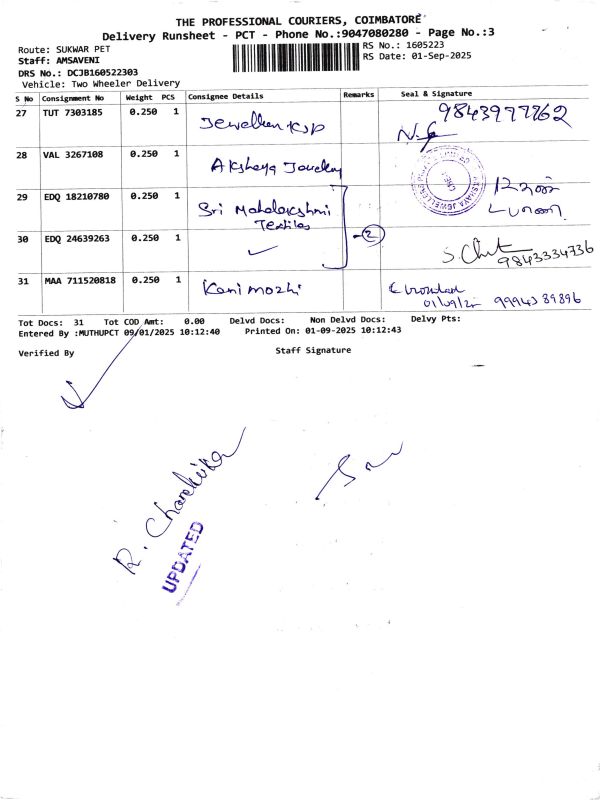 THE PROFESSIONAL COURIERS, COIMBATORE
Delivery Runsheet - PCT - Phone No.:9047080280 - Page No.:3
Route: SUKWAR PET
RS No.: 1605223
Staff: AMSAVENI
RS Date: 01-Sep-2025
DRS No.: DCJB160522303
Vehicle: Two Wheeler Delivery
S No Consignment No Weight PCS Consignee Details Remarks Seal & Signature
27 TUT 7303185 0.250 1 Jewellery KSP 9843977762
28 VAL 3267108 0.250 1 Akshaya Jewellery
29 EDQ 18210780 0.250 1 Sri Mahalakshmi
Textiles
2
30 EDQ 24639263 0.250 1 9843334736
31 MAA 711520818 0.250 1 Kanimozhi
01/09/25 9994389896
Tot Docs: 31 Tot COD Amt: 0.00 Delvd Docs: Non Delvd Docs: Delvy Pts:
Entered By :MUTHUPCT 09/01/2025 10:12:40 Printed On: 01-09-2025 10:12:43
Verified By Staff Signature
UPDATED